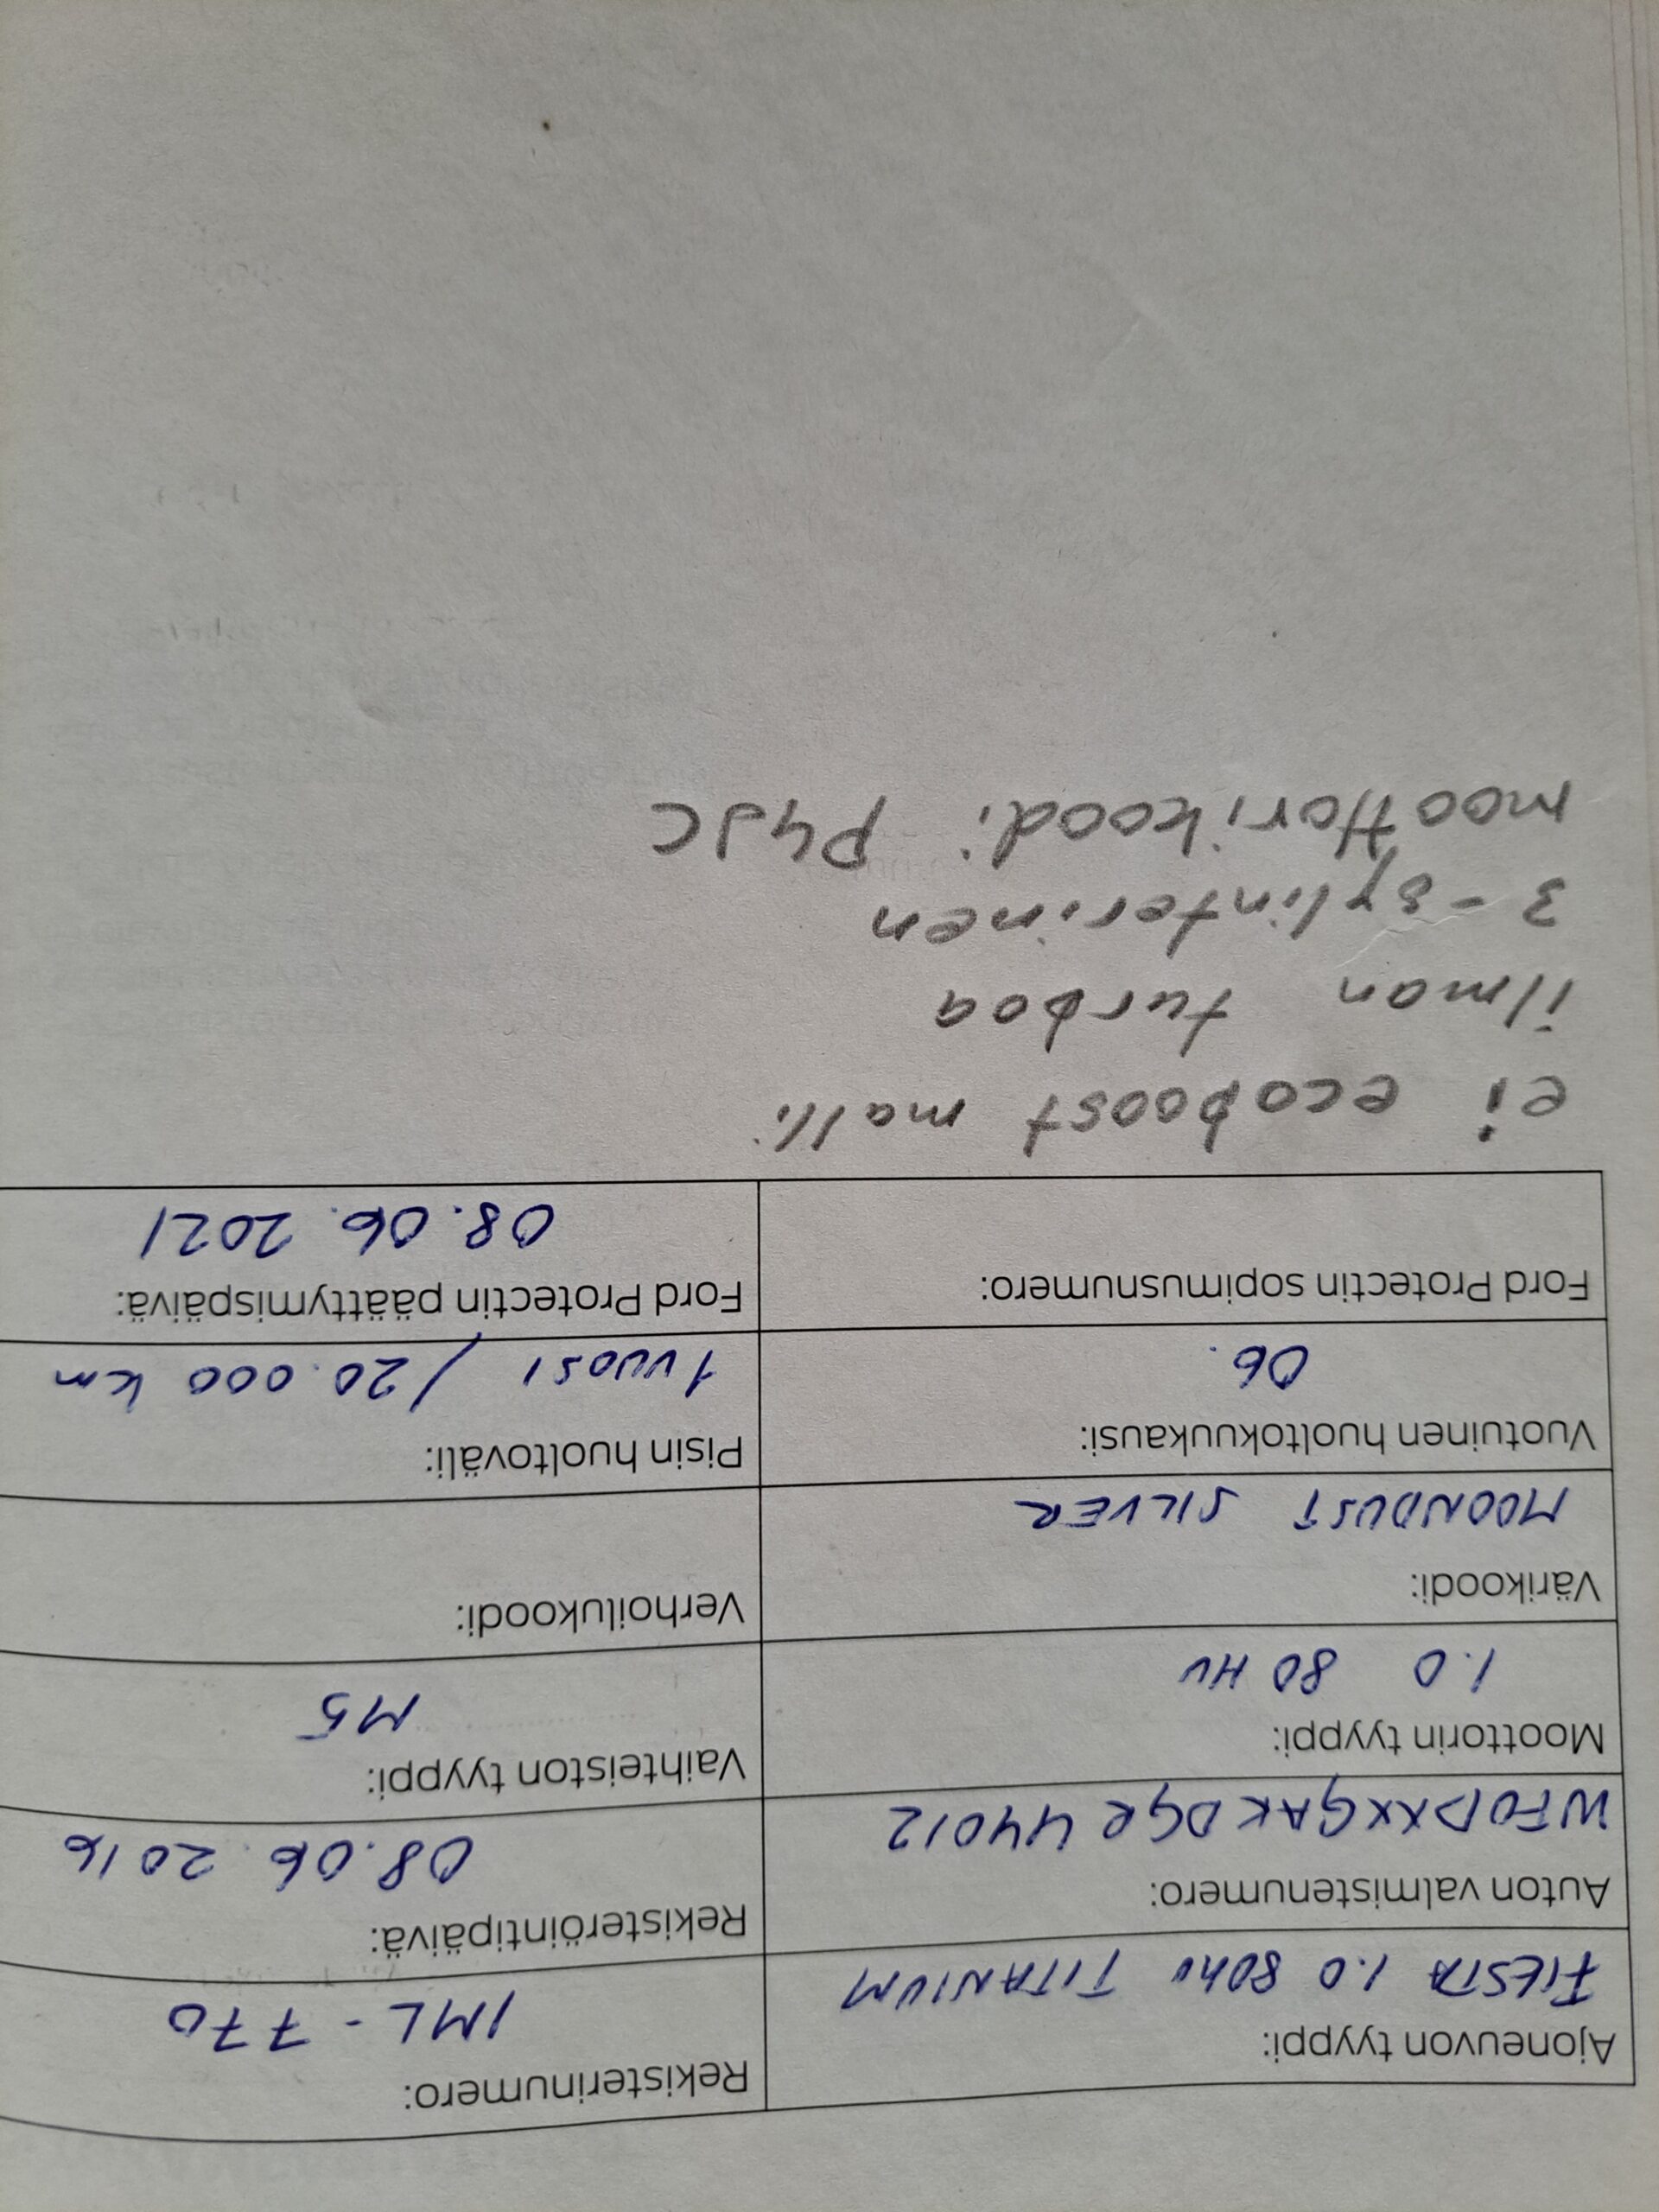 Ajoneuvon tyyppi:
FIESTA 1.0 80hv TITANIUM
Rekisterinumero:
IML - 770
Auton valmistenumero:
WF0DXXGAKDGR44012
Rekisteröintipäivä:
08.06.2016
Moottorin tyyppi:
1.0 80 HV
Vaihteiston tyyppi:
M5
Värikoodi:
MOONDUST SILVER
Verhoilukoodi:
Vuotuinen huoltokuukausi:
06.
Pisin huoltoväli:
1 vuosi / 20.000 km
Ford Protectin sopimusnumero:
Ford Protectin päättymispäivä:
08.06.2021
ei ecoboost malli
ilman turboa
3-sylinterinen
moottorikoodi P4JC